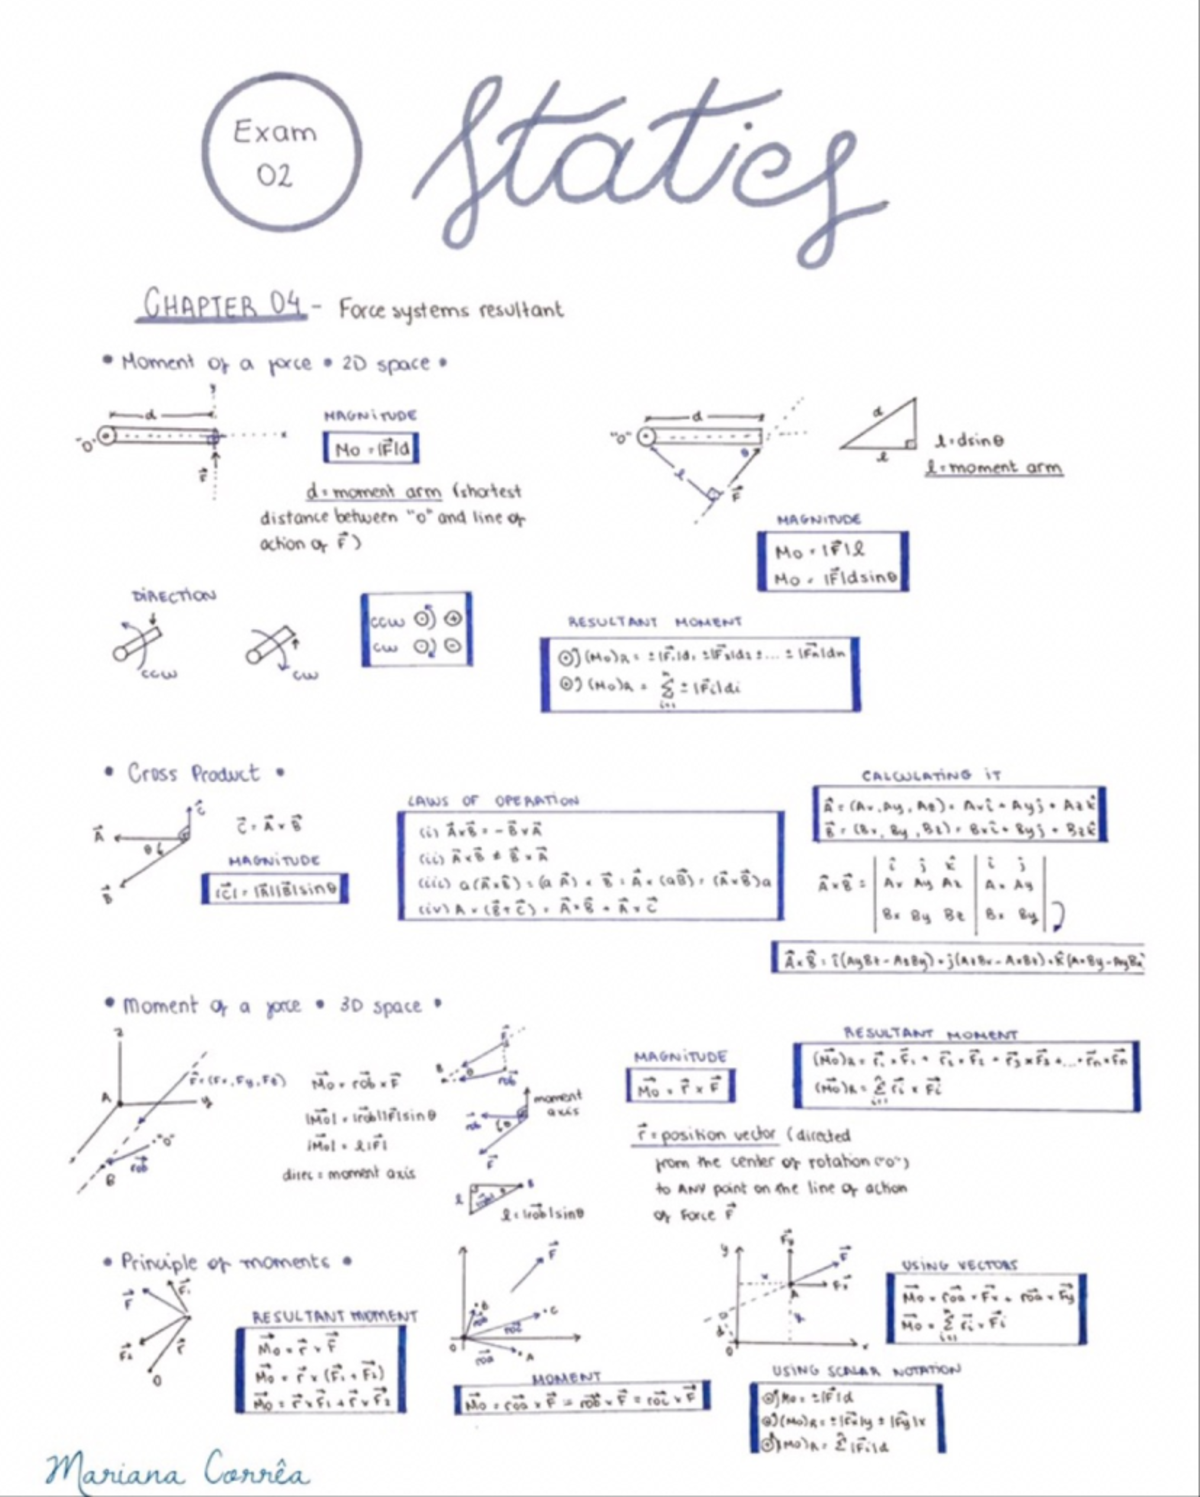 Exam
02
Statics
CHAPTER 04 - Force systems resultant
• Moment of a force • 2D space •
d
"O"
MAGNITUDE
Mo = |F⃗|d
d = moment arm (shortest
distance between "O" and line of
action of F⃗)
"O"
d
l
θ
F⃗
d
l
l = dsinθ
l = moment arm
MAGNITUDE
Mo = |F⃗|l
Mo = |F⃗|dsinθ
DIRECTION
CCW
CW
CCW
CW
RESULTANT MOMENT
(Mo)R = ±|F⃗1|d1 ±|F⃗2|d2 ±... ± |F⃗n|dn
(Mo)R = Σ ± |F⃗i|di
• Cross Product •
A⃗
B⃗
C⃗
θ
C⃗ = A⃗ x B⃗
MAGNITUDE
|C⃗| = |A⃗||B⃗|sinθ
LAWS OF OPERATION
(i) A⃗xB⃗ = - B⃗xA⃗
(ii) A⃗xB⃗ ≠ B⃗xA⃗
(iii) a(A⃗xB⃗) = (a A⃗) x B⃗ = A⃗ x (aB⃗) = (A⃗xB⃗)a
(iv) A x (B⃗+C⃗) = A⃗xB⃗ + A⃗xC⃗
CALCULATING IT
A⃗ = (Ax, Ay, Az) = Axî + Ayĵ + Azk̂
B⃗ = (Bx, By, Bz) = Bxî + Byĵ + Bzk̂
î ĵ k̂ î ĵ
A⃗xB⃗ = Ax Ay Az Ax Ay
Bx By Bz Bx By
A⃗xB⃗ = î(AyBz - AzBy) + ĵ(AzBx - AxBz) + k̂(AxBy - AyBx
• Moment of a force • 3D space •
z
A
y
F⃗ = (Fx, Fy, Fz)
"O"
B
rOB
M⃗o = r⃗OB x F⃗
|M⃗o| = |r⃗OB||F⃗|sinθ
|M⃗o| = l|F⃗|
direc = moment axis
moment
axis
l = |r⃗OB|sinθ
MAGNITUDE
M⃗o = r⃗ x F⃗
r⃗ = position vector (directed
from the center of rotation ("O")
to ANY point on the line of action
of force F⃗
RESULTANT MOMENT
(M⃗o)R = r⃗1 x F⃗1 + r⃗2 x F⃗2 + r⃗3 x F⃗3 +...+ r⃗n x F⃗n
(M⃗o)R = Σ r⃗i x F⃗i
• Principle of moments •
F⃗
F⃗1
F⃗2
r⃗
O
RESULTANT MOMENT
M⃗o = r⃗ x F⃗
M⃗o = r⃗ x (F⃗1 + F⃗2)
M⃗o = r⃗xF⃗1 + r⃗xF⃗2
F⃗
B
C
A
O
MOMENT
M⃗o = r⃗OA x F⃗ = r⃗OB x F⃗ = r⃗OC x F⃗
y
F⃗y
F⃗
F⃗x
A
x
d
O
USING VECTORS
M⃗o = r⃗OA x F⃗x + r⃗OA x F⃗y
M⃗o = Σ r⃗i x F⃗i
USING SCALAR NOTATION
Mo = ±|F⃗|d
(Mo)R = ±|F⃗x|y ± |F⃗y|x
(Mo)R = Σ |F⃗i|d
Mariana Corrêa